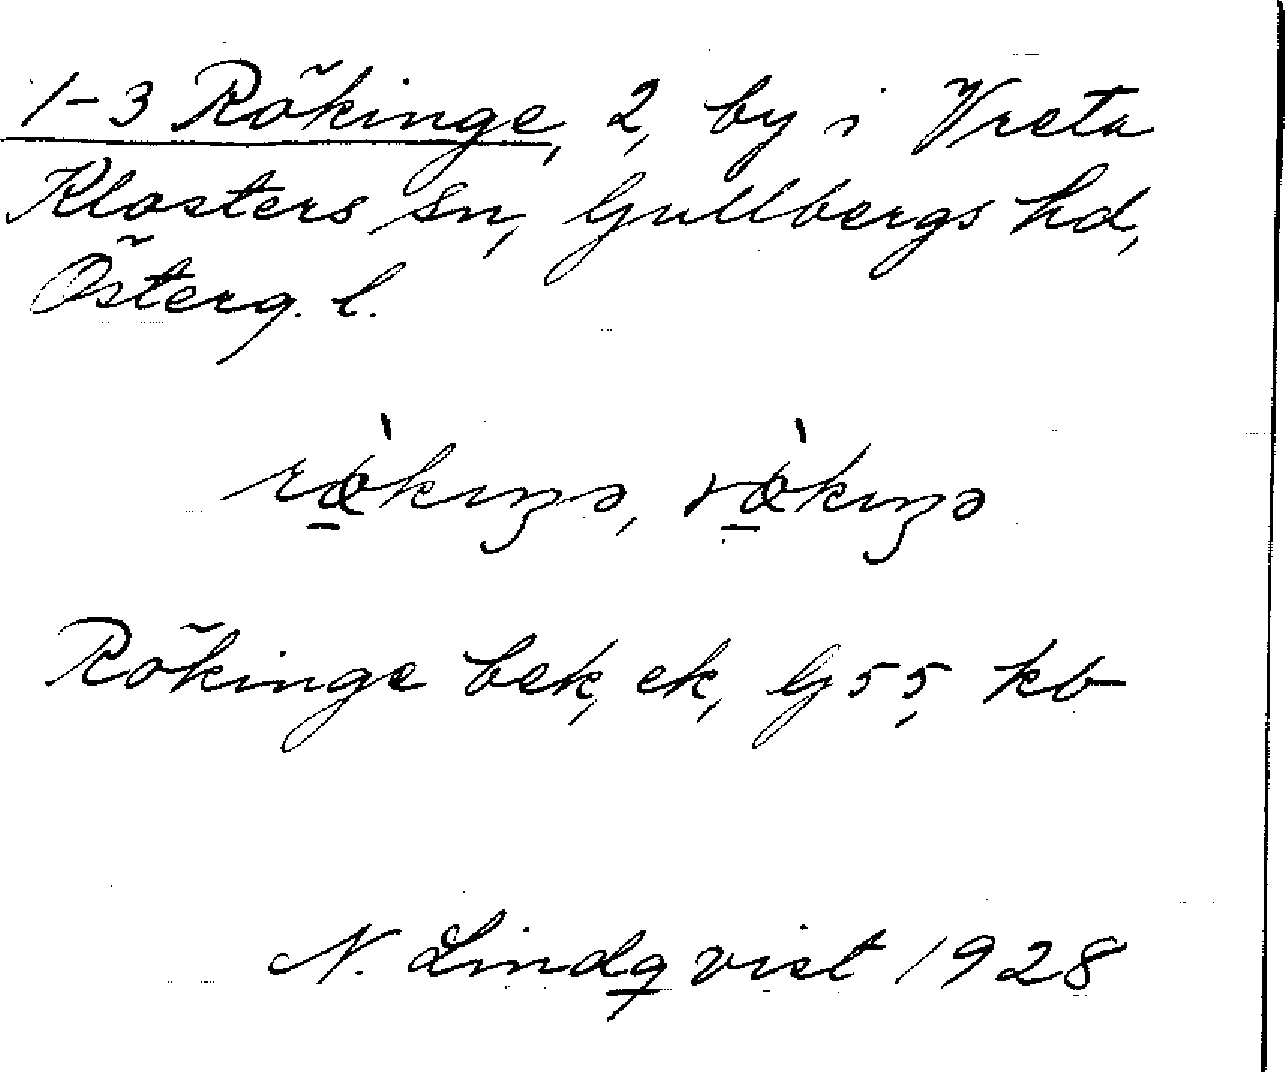 1-3 Rökinge, 2, by i Vreta
Klosters sn, Gullbergs hd,
Österg. l.
Rökinge bek, ek, G 55, kb
N. Lindqvist 1928